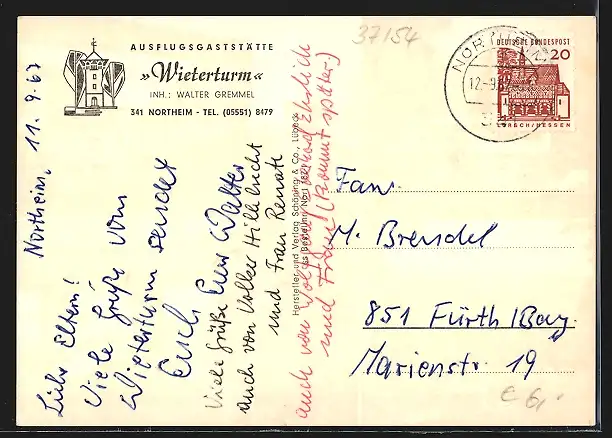 AUSFLUGSGASTSTÄTTE
»Wieterturm«
INH.: WALTER GREMMEL
341 NORTHEIM - TEL. (05551) 8479
Northeim, 11.9.67
Liebe Eltern!
Viele Grüße vom
Wieterturm sendet
Euch Euer Walter
Viele Grüße
auch von Volker Hillebrecht
und Frau Renate
auch von Ehrlich
und Frau! (kommt später)
Hersteller und Verlag Schöning & Co., Lübeck
37154
NORTHEIM
12.-9.67
DEUTSCHE BUNDESPOST
20
LORSCH/HESSEN
Fam.
M. Brendel
851 Fürth/Bay.
Marienstr. 19
€ 6,-